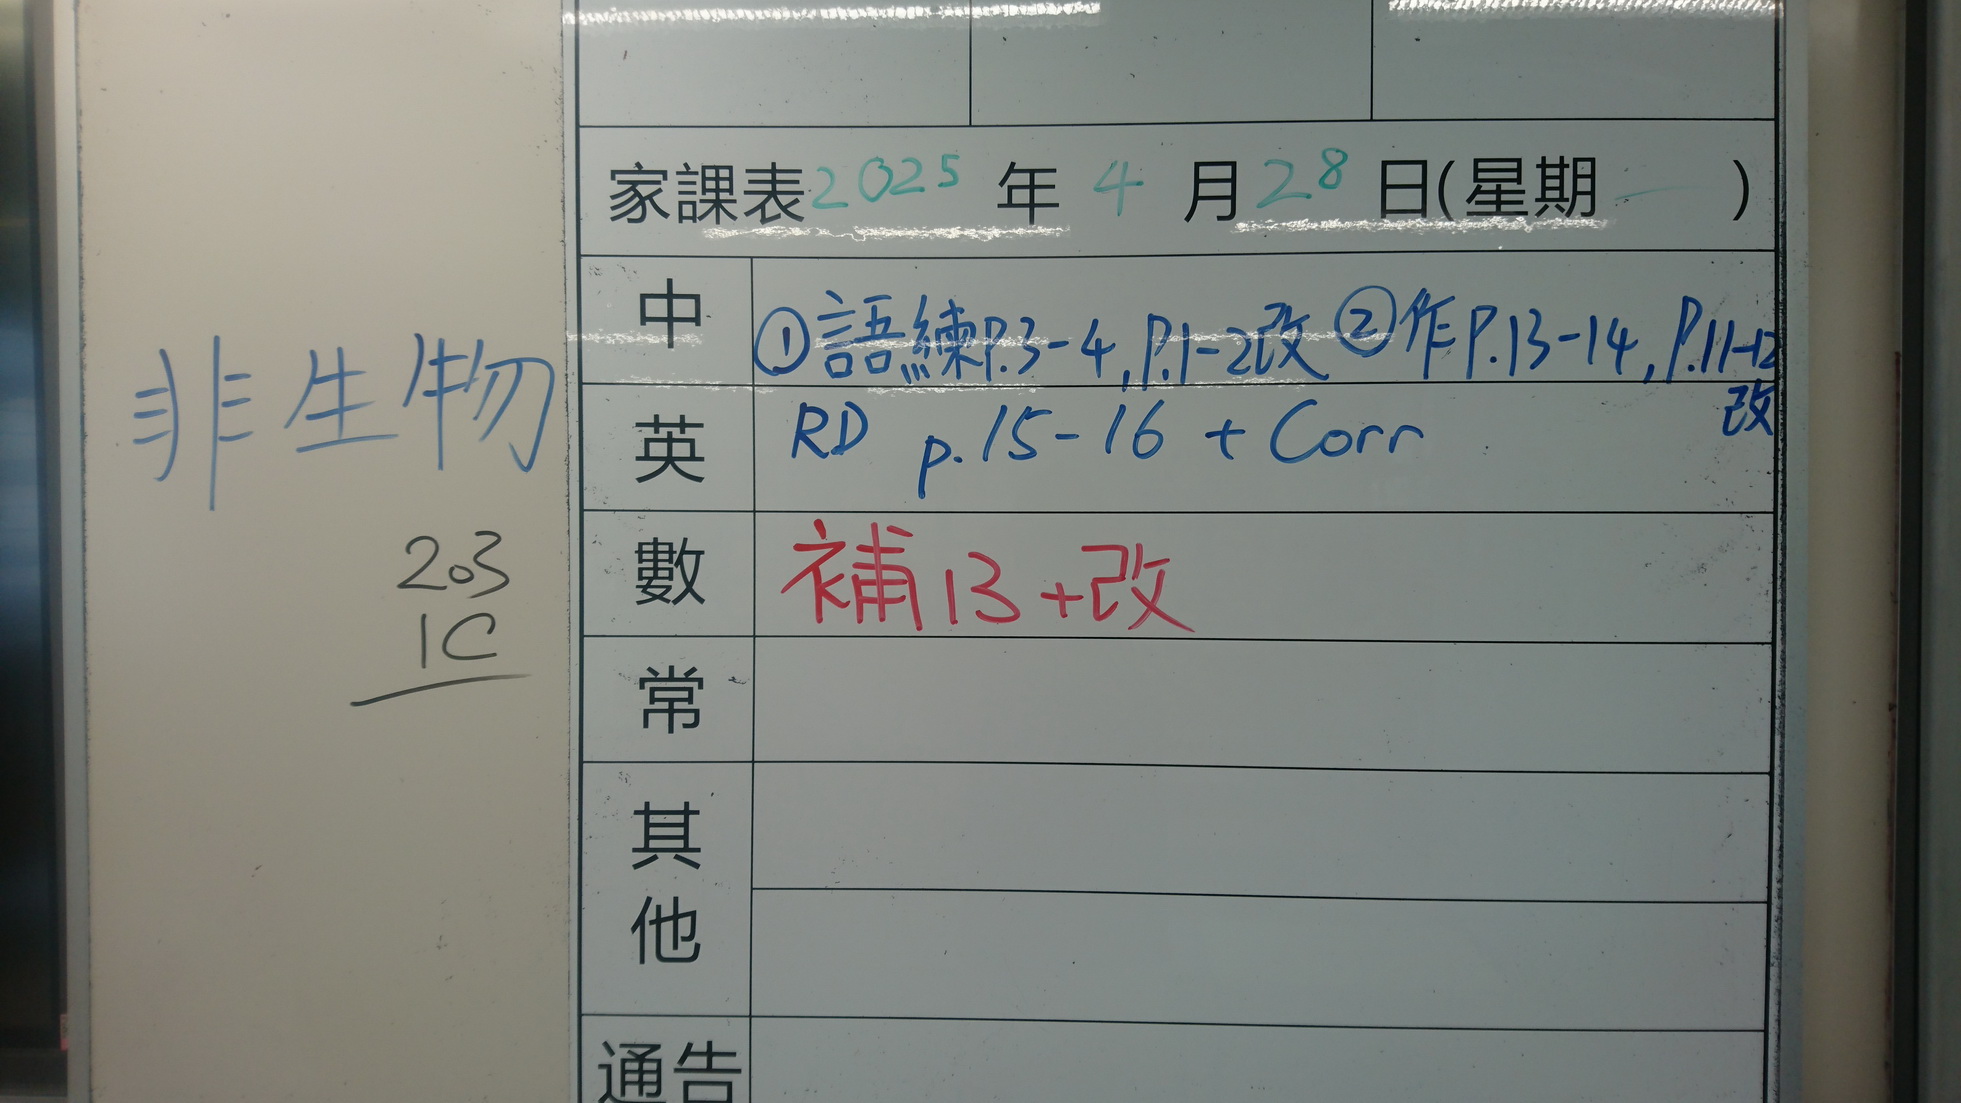 家課表2025年4月28日(星期一)
中 ①語練P.3-4,P.1-2改 ②作P.13-14,P.11-12
改
英 RD p.15-16 + Corr
數 補13+改
常
其他
通告
非生物
203
1C